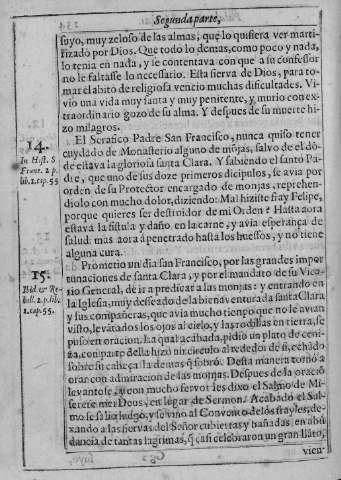 Segunda parte,
suyo, muy zeloso de las almas, que lo quisiera ver marti-
rizado por Dios. Que todo lo demas, como poco y nada,
lo tenia en nada, y se contentava con que a su confessor
no le faltasse lo necessario. Esta sierva de Dios, para to-
mar el abito de religiosa vencio muchas dificultades. Vi-
vio una vida muy santa y muy penitente, y murio con ex-
traordinario gozo de su alma. Y despues de su muerte hi-
zo milagros.
14.
In Hist. S.
Franc. 2. p.
lib. 2. cap. 55
El Serafico Padre San Francisco, nunca quiso tener
cuydado de Monasterio alguno de mõjas, salvo de el dõ-
de estava la gloriosa santa Clara. Y sabiendo el santo Pa-
dre, que uno de sus doze primeros dicipulos, se avia por
orden de su Protector encargado de monjas, reprehen-
diolo con mucho dolor, diziendo: Mal hiziste fray Felipe,
porque quieres ser destruidor de mi Orden? Hasta aora
estava la fistula y daño, en la carne, y avia esperança de
salud: mas aora à penetrado hasta los huessos, y no tiene
alguna cura.
15.
Ibid & Re-
bell. 2. p. lib.
2. cap. 55.
Prometio un dia san Francisco, por las grandes impor
tunaciones de santa Clara, y por el mandato de su Vica-
rio General, de ir a predicar a las monjas: y entrando en
la Iglesia, muy desseado de la bienaventurada santa Clara
y sus compañeras, que avia mucho tiempo que no le avian
visto, levãtados los ojos al cielo, y las rodillas en tierra, se
puso en oracion. La qual acabada, pidio un plato de ceni-
za, con parte della hizo un circulo al rededor de si, echãdo
sobre su cabeça la demas q̃ sobrò. Desta manera tornò a
orar con admiracion de las monjas. Despues de la oraciõ
levantose, y con mucho fervor les dixo el Salmo de Mi-
serere mei Deus, en lugar de Sermon. Acabado el Sal-
mo se salio luego, y se vino al Convento de los frayles, de-
xando a las siervas del Señor cubiertas y bañadas en abũ
dancia de tantas lagrimas, q̃ casi celebraron un gran llãto,
vien-